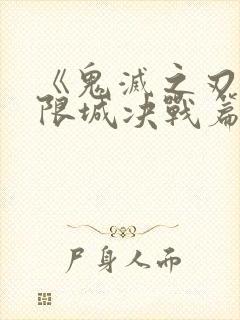 《鬼滅之刃
限城决戰篇
尸身人而